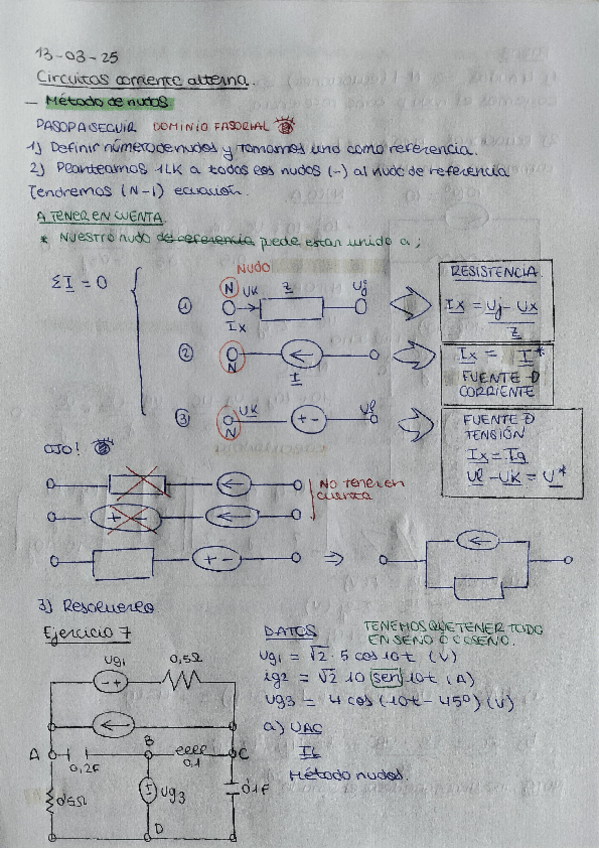 13-03-25
Circuitos corriente alterna.
- Método de nudos
PASOS A SEGUIR DOMINIO FASORIAL
1) Definir número de nudos y tomamos uno como referencia.
2) Planteamos 1LK a todos los nudos (-) al nudo de referencia
Tendremos (N-1) ecuación.
A TENER EN CUENTA.
* NUESTRO NUDO de referencia puede estar unido a;
ΣI = 0
NUDO
① N UK Z Uj
Ix
RESISTENCIA
Ix = Uj - Ux
Z
② N
I
Ix = I*
FUENTE D
CORRIENTE
③ N UK + - Ul
FUENTE D
TENSIÓN
Ix = Ig
Ul - UK = U*
OJO!
No tener en
cuenta
+ -
+ -
3) Resolverlo
Ejercicio 7
Ug1 0,5Ω
- +
A B C
0,2F 0.1
0'5Ω Ug3 0'1F
D
DATOS
TENEMOS QUE TENER TODO
EN SENO O COSENO.
Ug1 = √2 · 5 cos 10t (V)
ig2 = √2 10 sen 10t (A)
Ug3 = 4 cos (10t - 45º) (V)
a) UAC
IL
Método nudos.